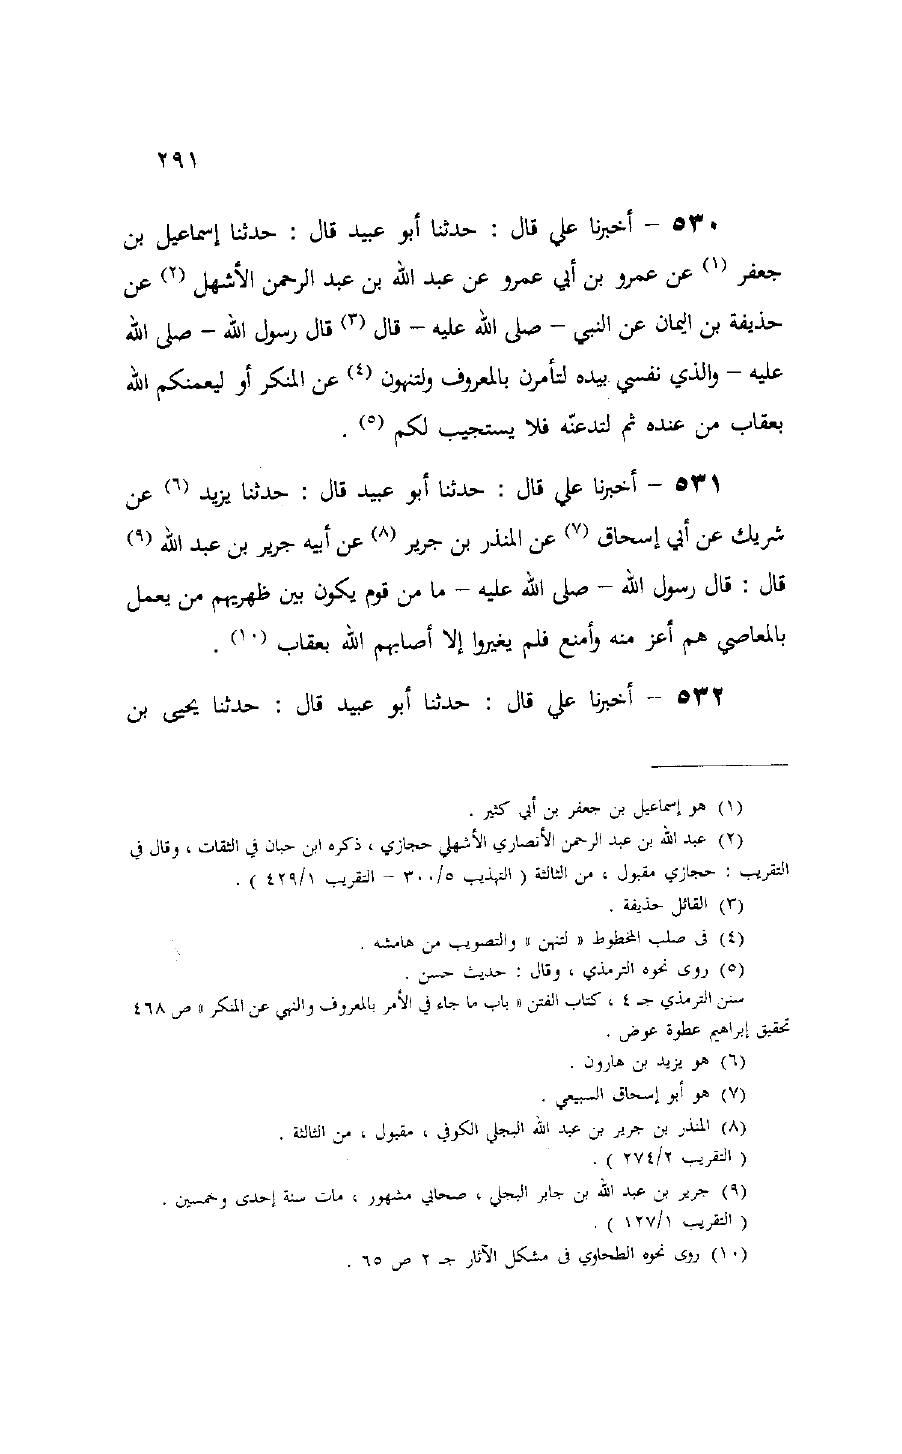 ٢٩١
٥٣٠ – أخبرنا علي قال : حدثنا أبو عبيد قال : حدثنا إسماعيل بن
جعفر (١) عن عمرو بن أبي عمرو عن عبد الله بن عبد الرحمن الأشهل (٢) عن
حذيفة بن اليمان عن النبي – صلى الله عليه – قال (٣) قال رسول الله – صلى الله
عليه – والذي نفسي بيده لتأمرن بالمعروف ولتنهون (٤) عن المنكر أو ليعمنكم الله
بعقاب من عنده ثم لتدعنّه فلا يستجيب لكم (٥) .
٥٣١ – أخبرنا علي قال : حدثنا أبو عبيد قال : حدثنا يزيد (٦) عن
شريك عن أبي إسحاق (٧) عن المنذر بن جرير (٨) عن أبيه جرير بن عبد الله (٩)
قال : قال رسول الله – صلى الله عليه – ما من قوم يكون بين ظهريهم من يعمل
بالمعاصي هم أعز منه وأمنع فلم يغيروا إلا أصابهم الله بعقاب (١٠) .
٥٣٢ – أخبرنا علي قال : حدثنا أبو عبيد قال : حدثنا يحيى بن
(١) هو إسماعيل بن جعفر بن أبي كثير .
(٢) عبد الله بن عبد الرحمن الأنصاري الأشهلي حجازي ، ذكره ابن حبان في الثقات ، وقال في
التقريب : حجازي مقبول ، من الثالثة ( التهذيب ٣٠٠/٥ – التقريب ٤٢٩/١ ) .
(٣) القائل حذيفة .
(٤) فى صلب المخطوط « لتنهن » والتصويب من هامشه .
(٥) روى نحوه الترمذي ، وقال : حديث حسن .
سنن الترمذي جـ ٤ ، كتاب الفتن « باب ما جاء في الأمر بالمعروف والنهي عن المنكر » ص ٤٦٨
تحقيق إبراهيم عطوة عوض .
(٦) هو يزيد بن هارون .
(٧) هو أبو إسحاق السبيعي .
(٨) المنذر بن جرير بن عبد الله البجلي الكوفي ، مقبول ، من الثالثة .
( التقريب ٢٧٤/٢ ) .
(٩) جرير بن عبد الله بن جابر البجلي ، صحابي مشهور ، مات سنة إحدى وخمسين .
( التقريب ١٢٧/١ ) .
(١٠) روى نحوه الطحاوي فى مشكل الآثار جـ ٢ ص ٦٥ .